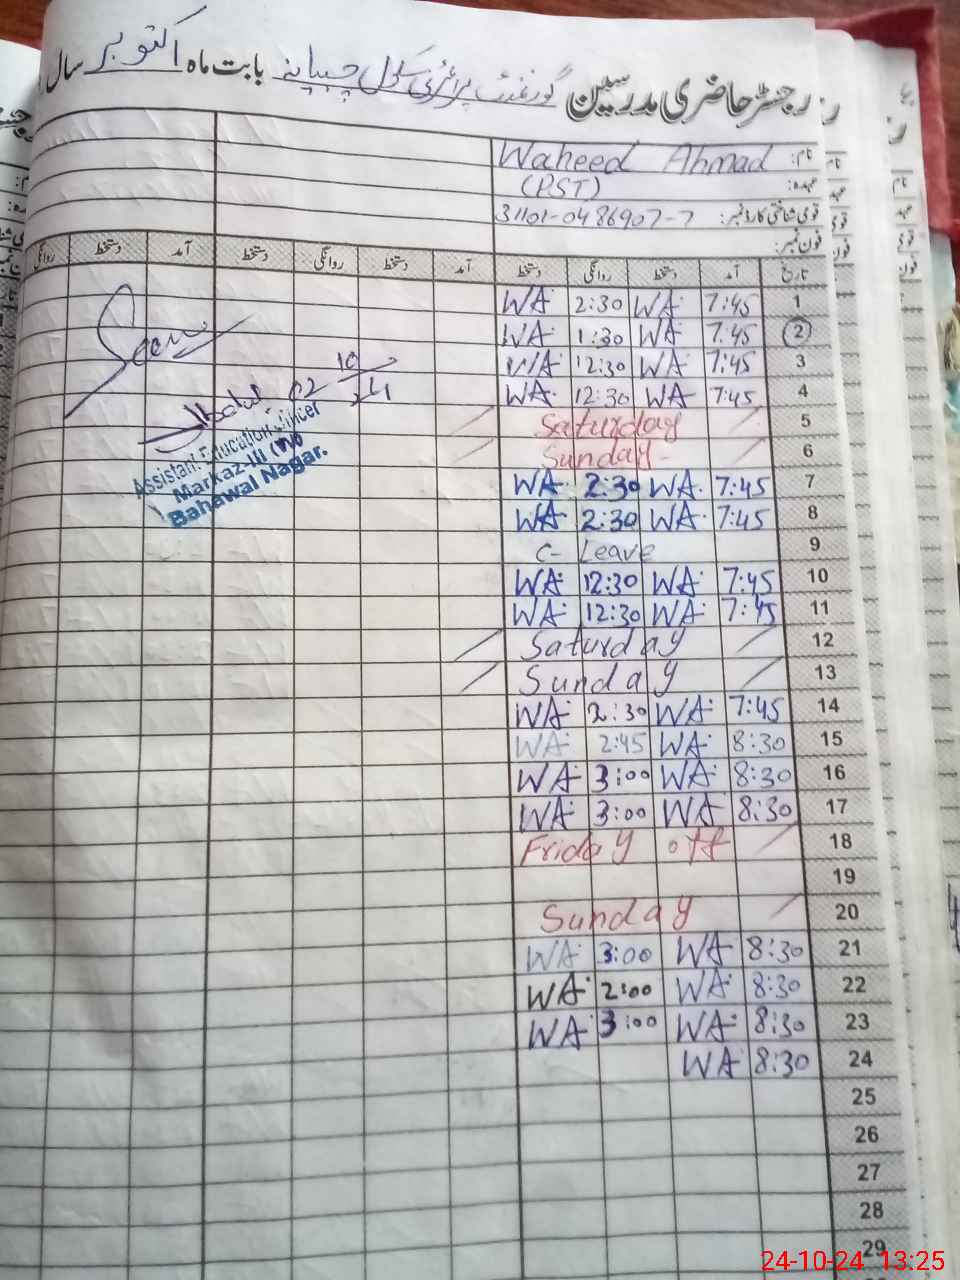 رجسٹر حاضری مدرسین گورنمنٹ پرائمری سکول بابت ماہ اکتوبر سال
نام: Waheed Ahmad
عہدہ: (PST)
قومی شناختی کارڈ نمبر: 31101-0486907-7
فون نمبر:
تاریخ آمد دستخط روانگی دستخط آمد دستخط روانگی دستخط آمد دستخط روانگی
WA 2:30 WA 7:45 1
WA 1:30 WA 7:45 2
WA 12:30 WA 7:45 3
WA 12:30 WA 7:45 4
Saturday 5
Sunday 6
WA 2:30 WA 7:45 7
WA 2:30 WA 7:45 8
C- Leave 9
WA 12:30 WA 7:45 10
WA 12:30 WA 7:45 11
Saturday 12
Sunday 13
WA 2:30 WA 7:45 14
WA 2:45 WA 8:30 15
WA 3:00 WA 8:30 16
WA 3:00 WA 8:30 17
Friday off 18
19
Sunday 20
WA 3:00 WA 8:30 21
WA 2:00 WA 8:30 22
WA 3:00 WA 8:30 23
WA 8:30 24
25
26
27
28
29
Seen
Assistant Education Officer
Markaz III
Bahawal Nagar.
24-10-24 13:25